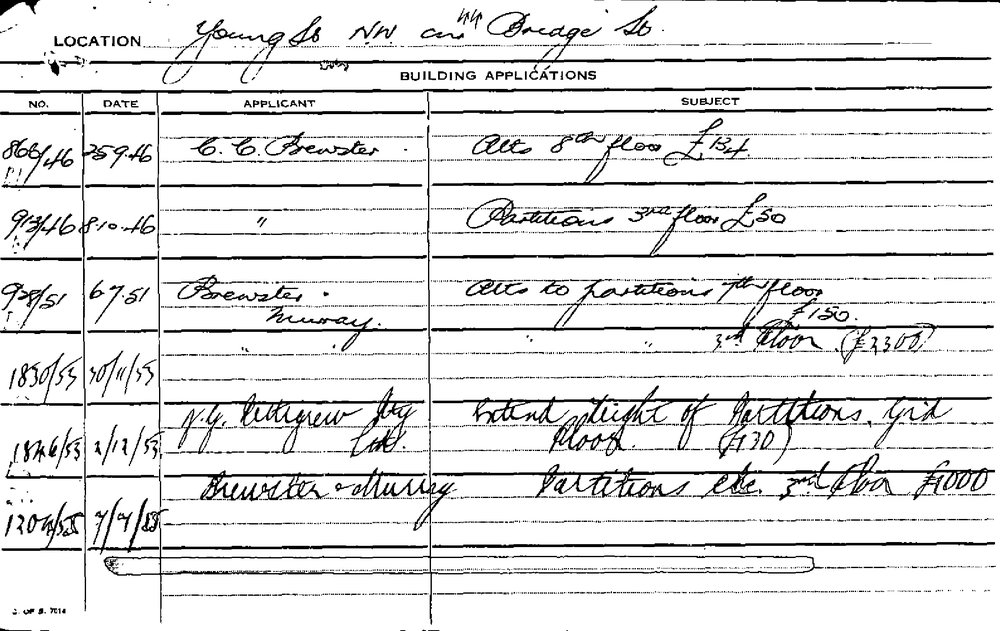 LOCATION Young St NW cnr 44 Bridge St.
BUILDING APPLICATIONS
NO. DATE APPLICANT SUBJECT
866/46 25.9.46 C. C. Brewster. Alts 8th floor £134
913/46 8.10.46 " Partitions 3rd floor £50
928/51 6.7.51 Brewster. Alts to partitions 7th floor
Murray. £150.
1830/53 30/11/53 " " " " 3rd Floor (£2300)
1846/53 2/12/53 J.G. Pettigrew Pty Extend Height of Partitions, Grd
Ltd. Floor. (£130)
1204/55 7/7/55 Brewster & Murray Partitions etc. 3rd Floor £1000
C. OF S. 7014